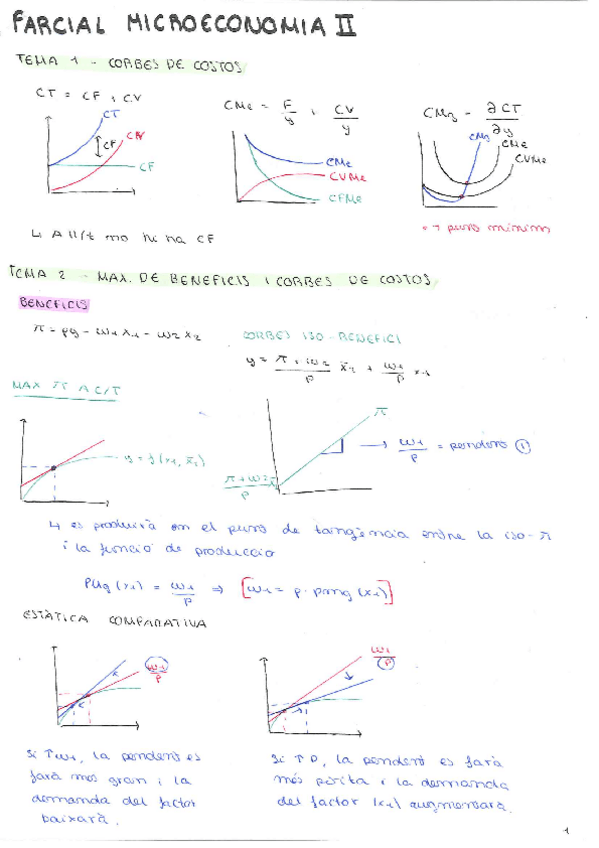 PARCIAL MICROECONOMIA II
TEMA 1 - CORBES DE COSTOS
CT = CF + CV
CMe = F/y + CV/y
CMg = ∂CT/∂y
CT
CV
CF
CF
CMe
CVMe
CFMe
CMg
CMe
CVMe
↳ A ll/t no hi ha CF
• → punt mínim
TEMA 2 - MAX. DE BENEFICIS I CORBES DE COSTOS
BENEFICIS
π = py - w1 x1 - w2 x2
CORBES ISO-BENEFICI
y = π + w2/p x̄2 + w1/p x1
MAX π A C/T
y = f(x1, x̄2)
π
→ w1/p = pendent ①
π + w2x̄/p
↳ es produirà en el punt de tangència entre la iso-π
i la funció de producció
PMg (x1) = w1/p ⇒ [w1 = p · pmg (x1)]
ESTÀTICA COMPARATIVA
w1/p
w1/p
Si ↑w1, la pendent es
farà més gran i la
demanda del factor
baixarà.
Si ↑P, la pendent es farà
més petita i la demanda
del factor (x1) augmentarà.
1